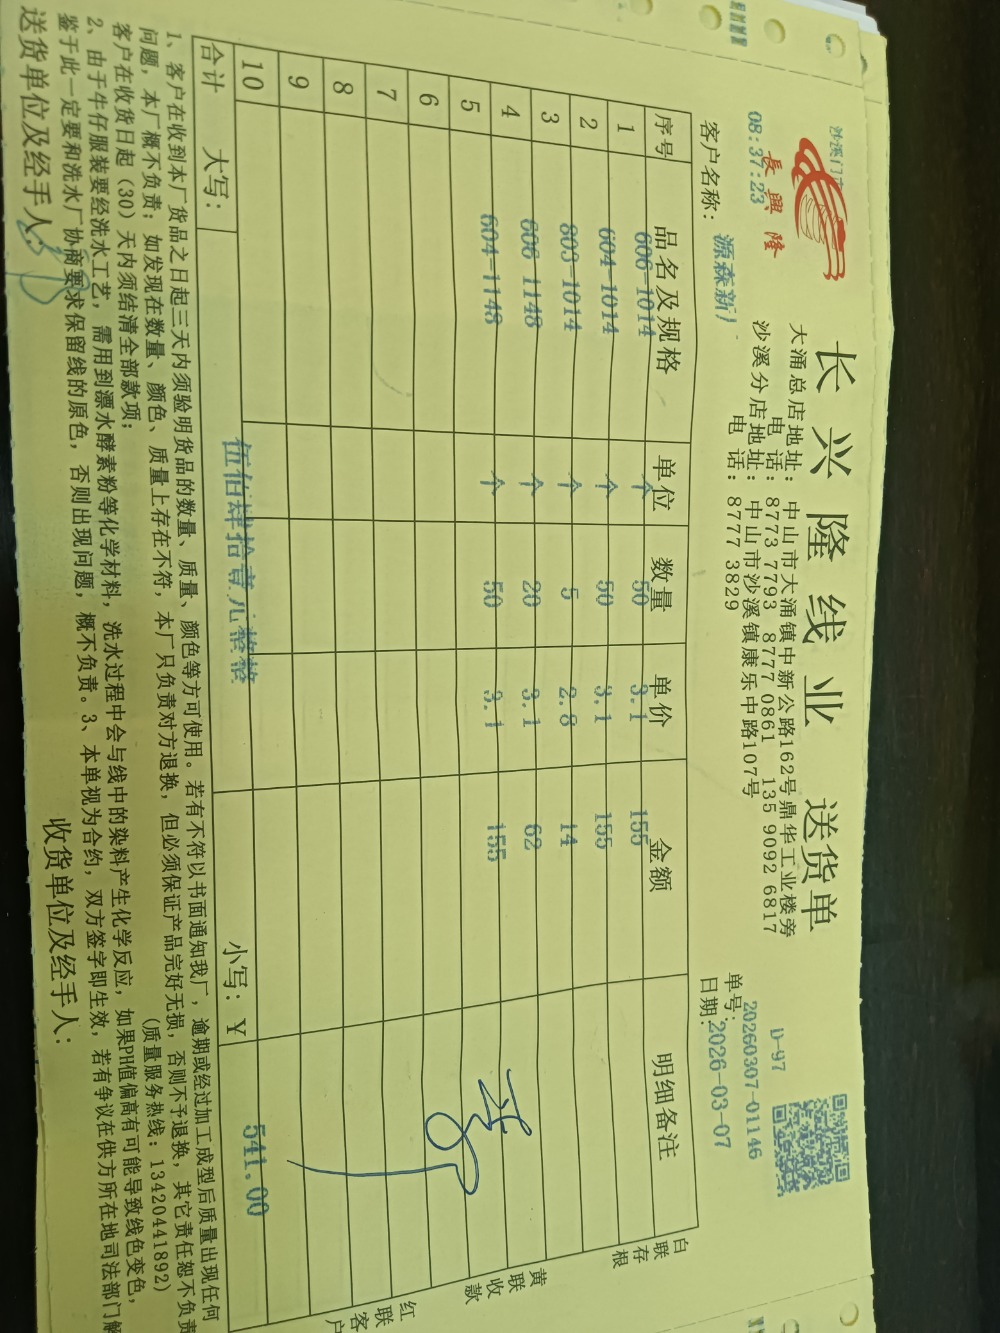 沙溪门
08:37:23
長興隆
长兴隆线业 送货单
大涌总店地址: 中山市大涌镇中新公路162号鼎华工业楼旁
电 话: 8773 7793 8777 0861 135 9092 6817
沙溪分店地址: 中山市沙溪镇康乐中路107号
电 话: 8777 3829
D-97
单号: 20260307-01146
日期: 2026-03-07
客户名称: 源森新厂
序号 品名及规格 单位 数量 单价 金额 明细备注
1 606-1014 个 50 3.1 155
2 604-1014 个 50 3.1 155
3 803-1014 个 5 2.8 14
4 606-1148 个 20 3.1 62
5 604-1148 个 50 3.1 155
6
7
8
9
10
合计 大写: 伍佰肆拾壹元整整 小写: ¥ 541.00
白联存根
黄联收款
红联客户
1、客户在收到本厂货品之日起三天内须验明货品的数量、质量、颜色等方可使用。若有不符以书面通知我厂, 逾期或经过加工成型后质量出现任何
问题, 本厂概不负责; 如发现在数量、颜色、质量上存在不符, 本厂只负责对方退换, 但必须保证产品完好无损, 否则不予退换, 其它责任恕不负责
客户在收货日起 (30) 天内须结清全部款项; (质量服务热线: 13420441892)
2、由于牛仔服装要经洗水工艺, 需用到漂水酵素粉等化学材料, 洗水过程中会与线中的染料产生化学反应, 如果PH值偏高有可能导致线色变色,
鉴于此一定要和洗水厂协商要求保留线的原色, 否则出现问题, 概不负责。3、本单视为合约, 双方签字即生效, 若有争议在供方所在地司法部门解
送货单位及经手人: 收货单位及经手人: